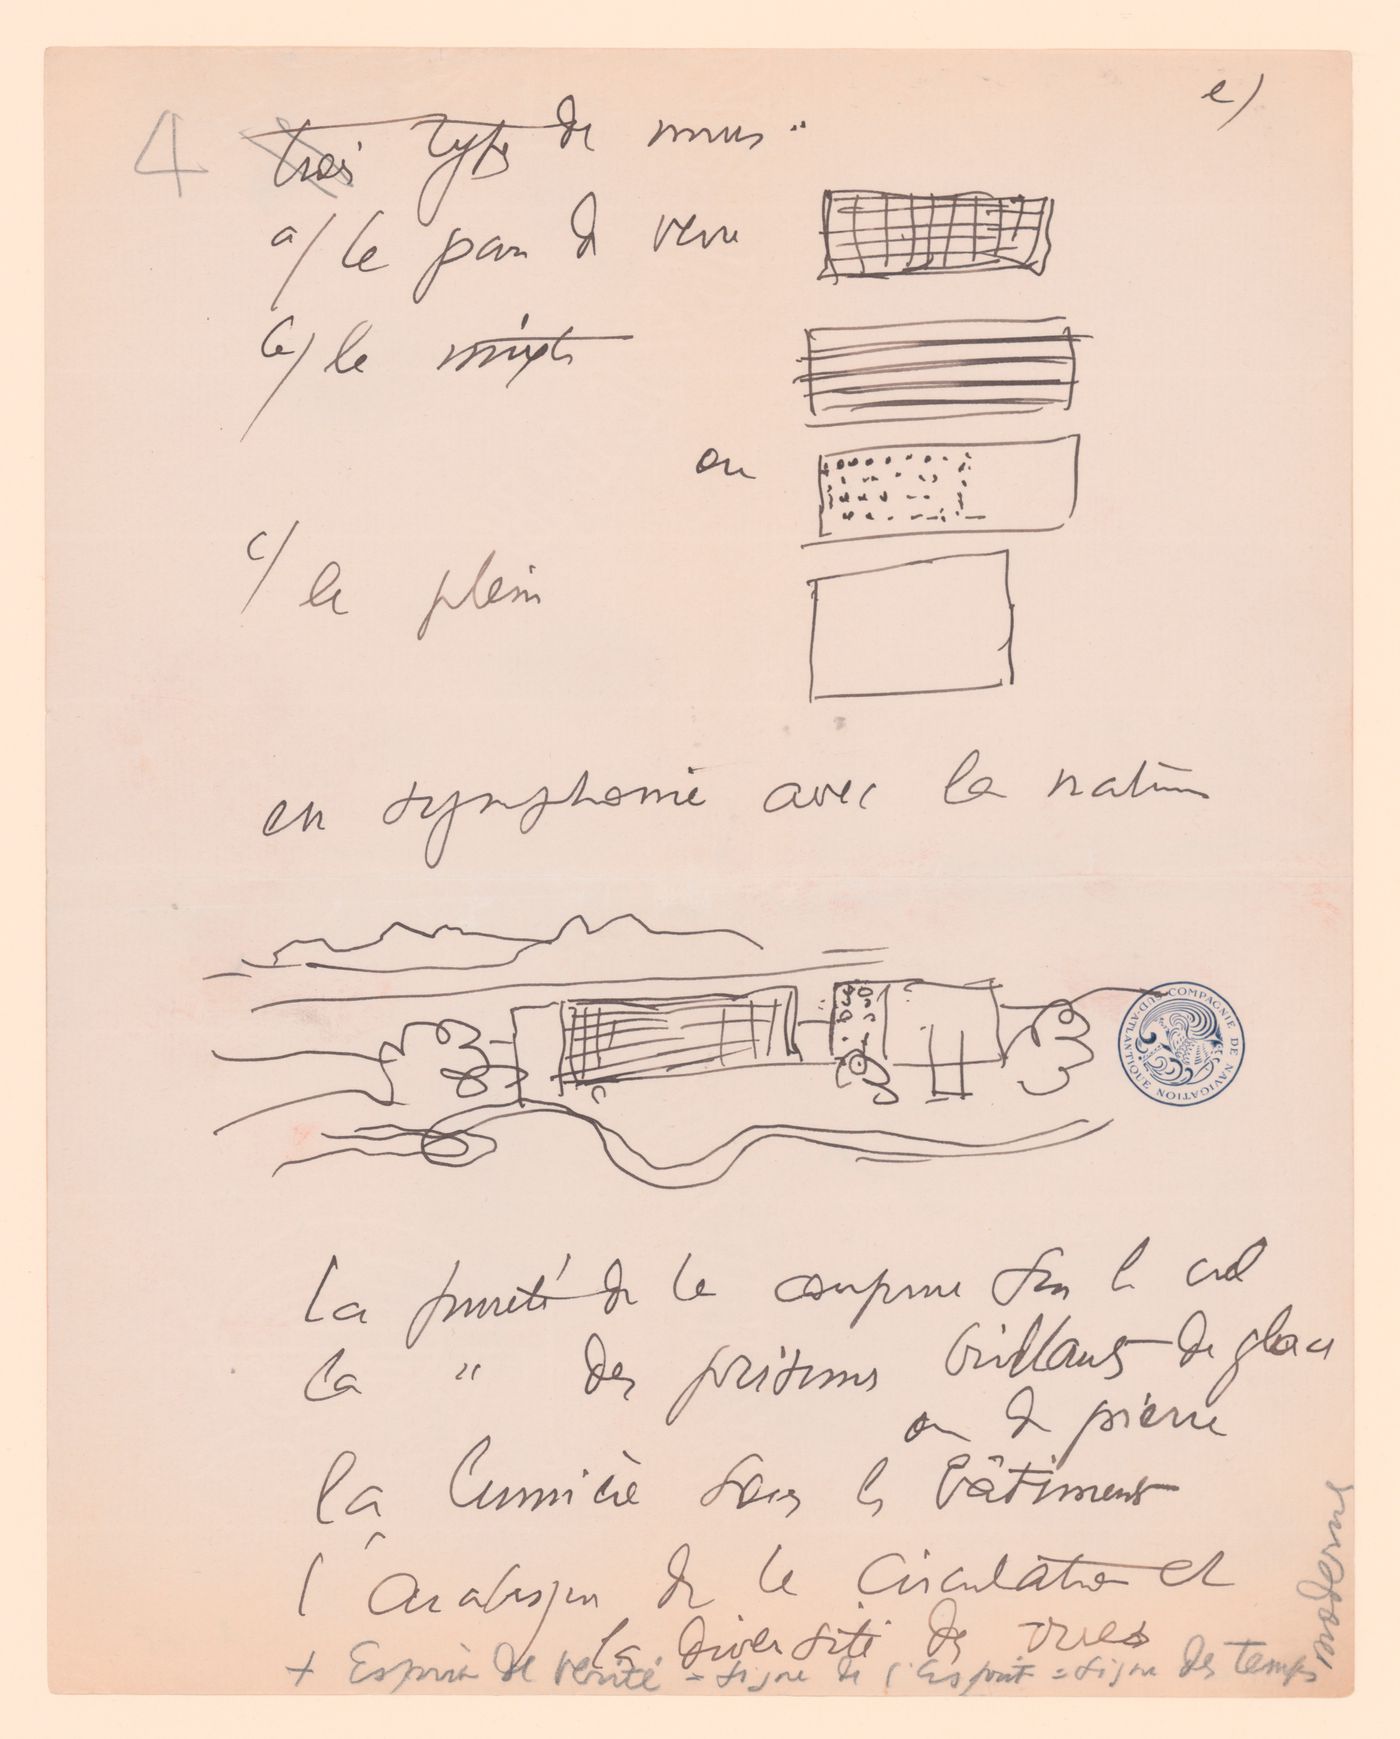 e)
4 trois types de murs "
a/ le pan de verre
b/ le mixte
ou
c/ le plein
en symphonie avec la nature
COMPAGNIE DE NAVIGATION SUD-ATLANTIQUE
La pureté de la coupure sur le ciel
La " des prismes brillants de glace
ou de pierre
la lumière sous le bâtiment
l'arabesque de la circulation et
la diversité des vues
+ Esprit de vérité = signe de l'Esprit = signe des temps
modernes